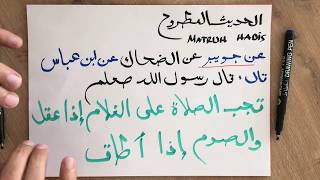 الحديث المطروح
MATRUH HADIS
عن جويبر عن الضحاك عن ابن عباس
قال: قال رسول الله صلعلم
تجب الصلاة على الغلام إذا عقل
والصوم إذا أطاق
DRAWING PEN